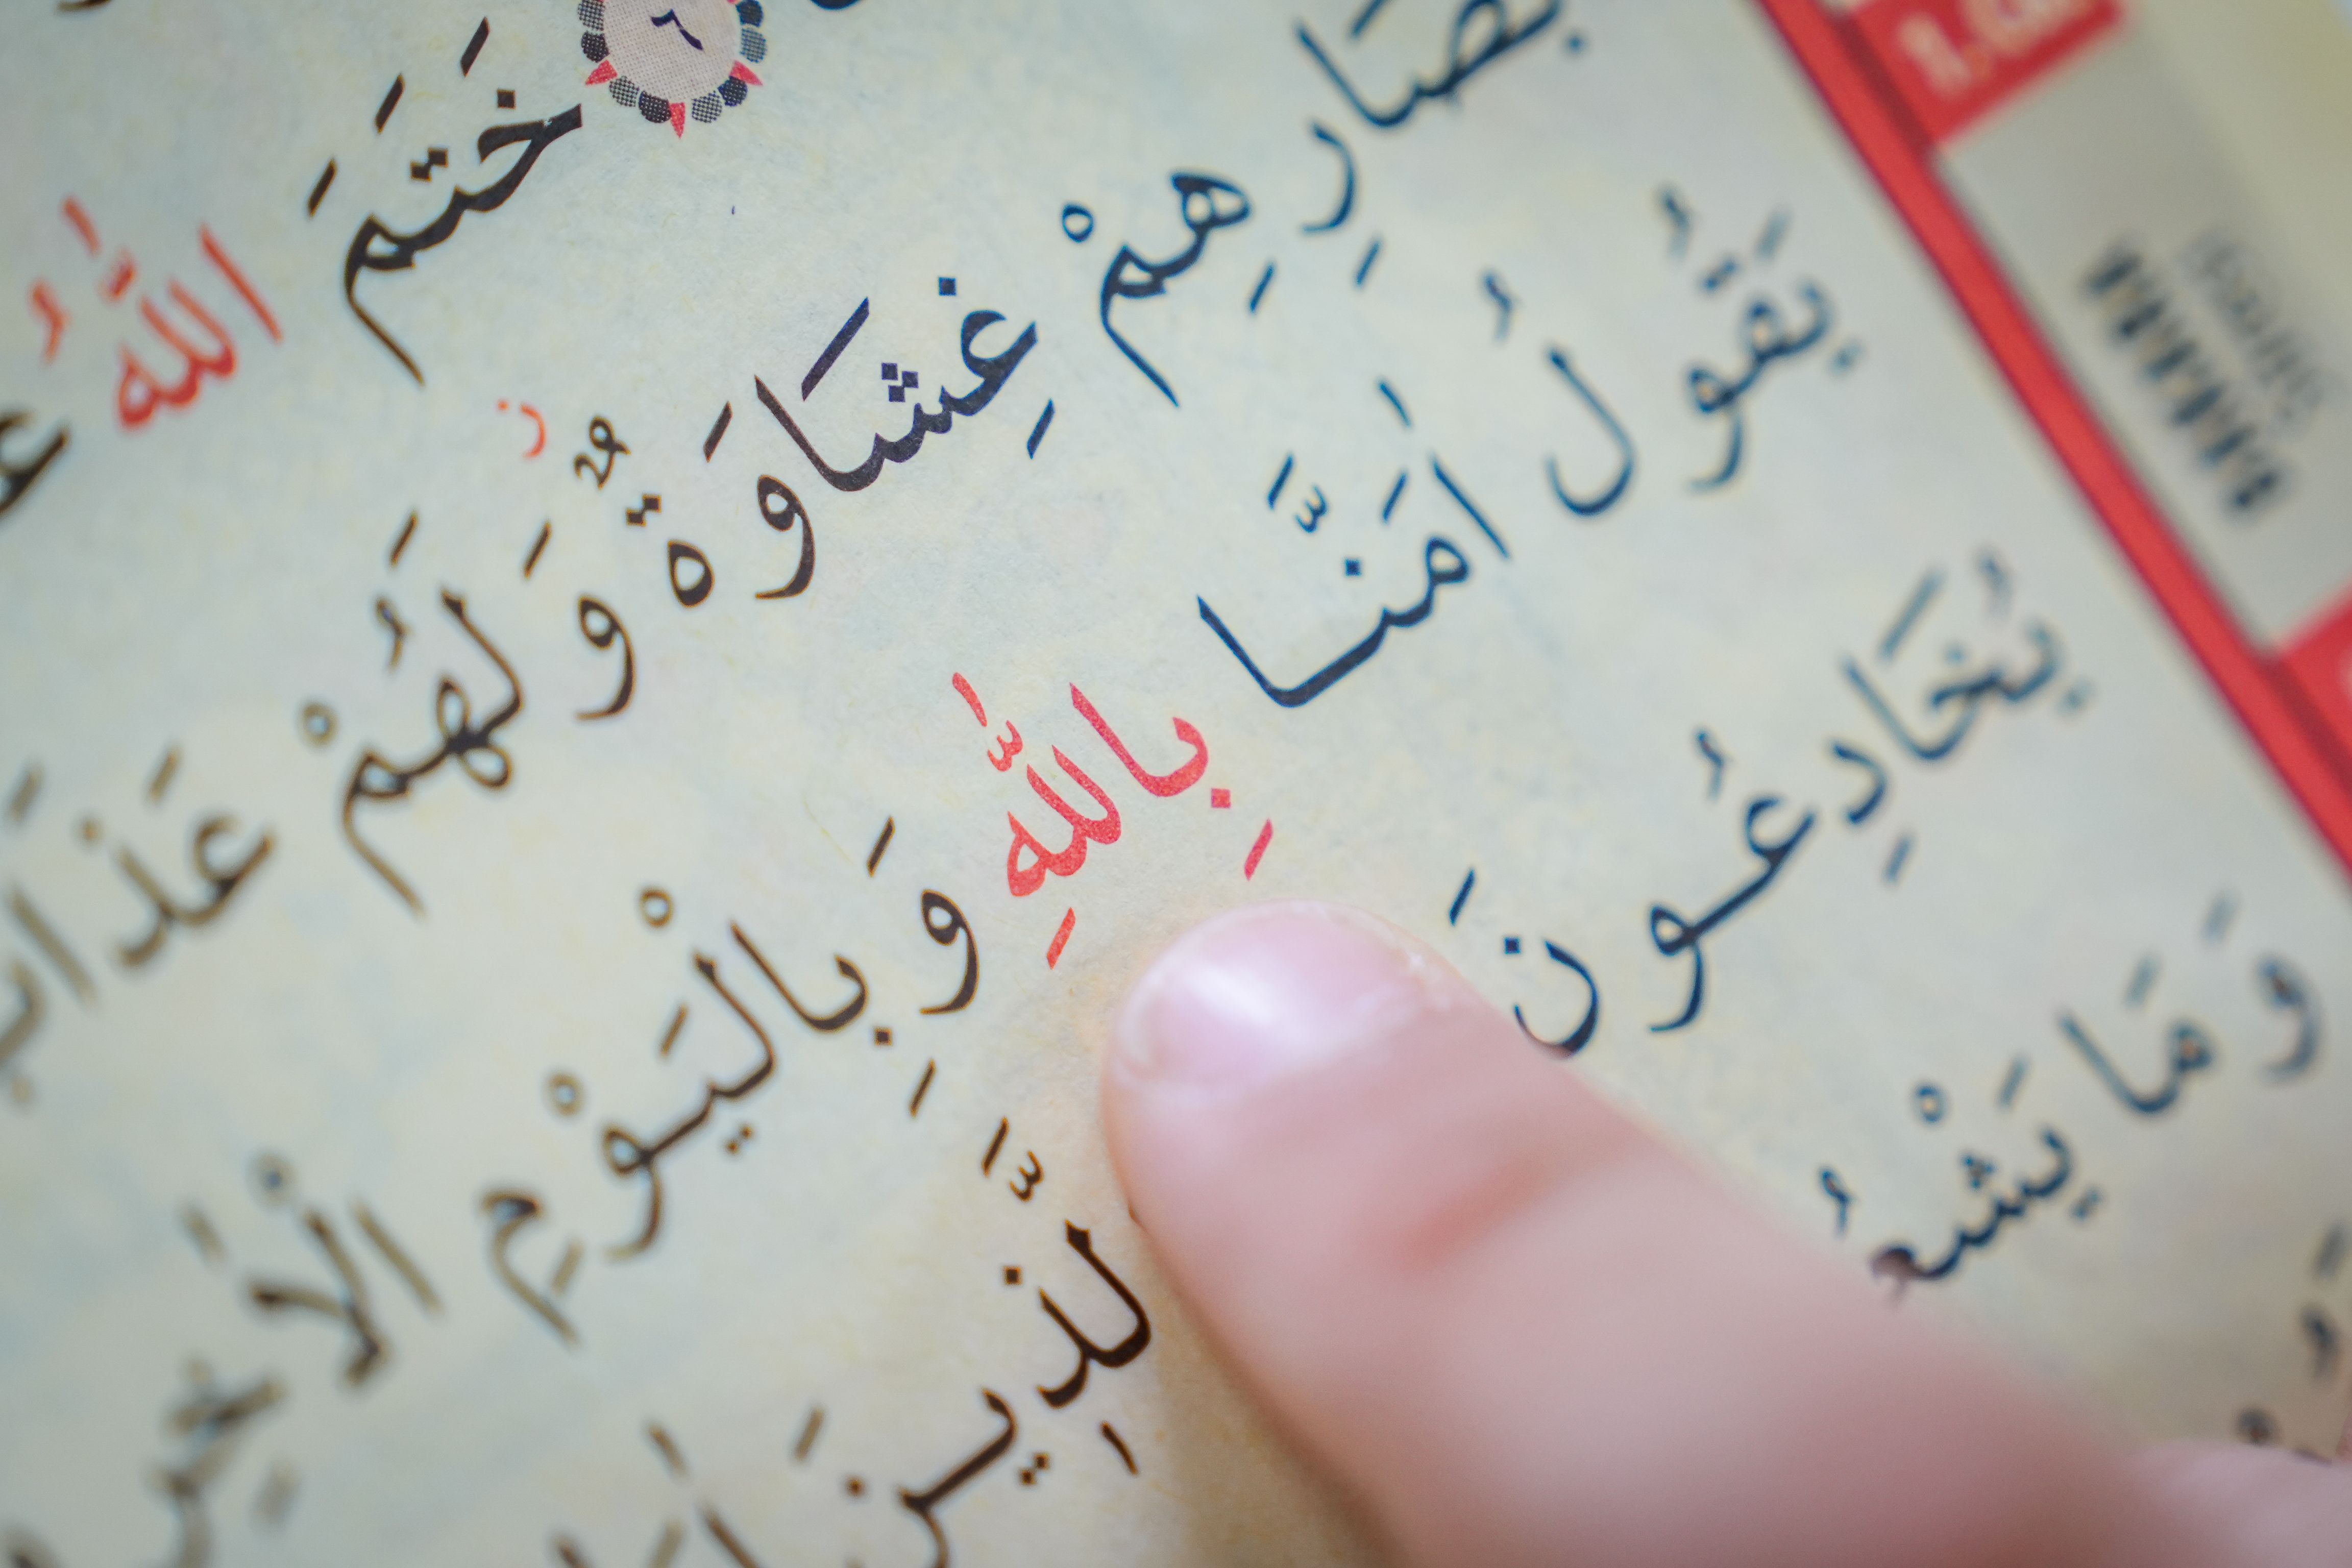 ٦ خَتَمَ اللّٰهُ
بْصَارِهِمْ غِشَاوَةٌ وَلَهُمْ عَذَابٌ
يَقُولُ اٰمَنَّا بِاللّٰهِ وَبِالْيَوْمِ الْاٰخِرِ
يُخَادِعُونَ لَّذِينَ
وَمَا يَشْعُ